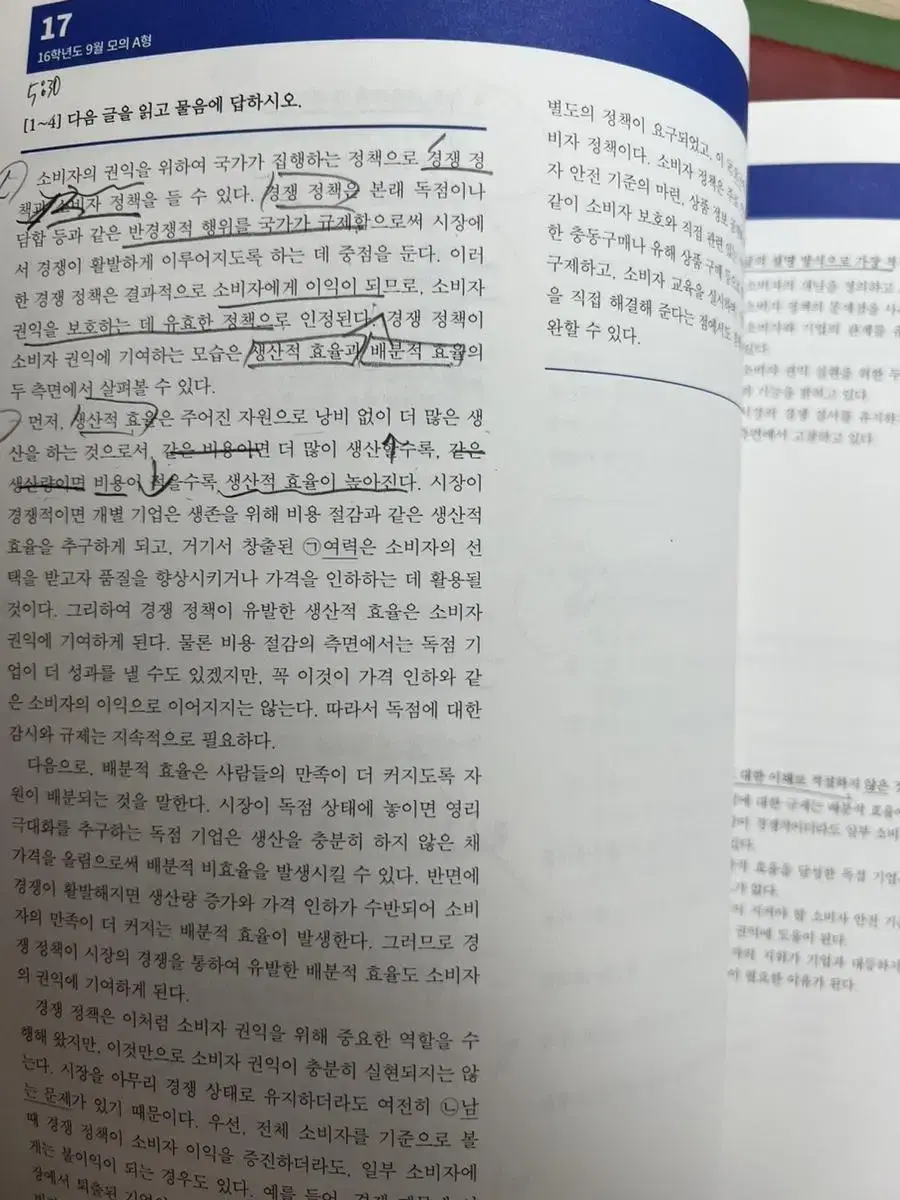 17
16학년도 9월 모의 A형
5:30
[1~4] 다음 글을 읽고 물음에 답하시오.
소비자의 권익을 위하여 국가가 집행하는 정책으로 경쟁 정
책과 소비자 정책을 들 수 있다. 경쟁 정책은 본래 독점이나
담합 등과 같은 반경쟁적 행위를 국가가 규제함으로써 시장에
서 경쟁이 활발하게 이루어지도록 하는 데 중점을 둔다. 이러
한 경쟁 정책은 결과적으로 소비자에게 이익이 되므로, 소비자
권익을 보호하는 데 유효한 정책으로 인정된다. 경쟁 정책이
소비자 권익에 기여하는 모습은 생산적 효율과 배분적 효율의
두 측면에서 살펴볼 수 있다.
먼저, 생산적 효율은 주어진 자원으로 낭비 없이 더 많은 생
산을 하는 것으로서, 같은 비용이면 더 많이 생산할수록, 같은
생산량이면 비용이 적을수록 생산적 효율이 높아진다. 시장이
경쟁적이면 개별 기업은 생존을 위해 비용 절감과 같은 생산적
효율을 추구하게 되고, 거기서 창출된 ㉠여력은 소비자의 선
택을 받고자 품질을 향상시키거나 가격을 인하하는 데 활용될
것이다. 그리하여 경쟁 정책이 유발한 생산적 효율은 소비자
권익에 기여하게 된다. 물론 비용 절감의 측면에서는 독점 기
업이 더 성과를 낼 수도 있겠지만, 꼭 이것이 가격 인하와 같
은 소비자의 이익으로 이어지지는 않는다. 따라서 독점에 대한
감시와 규제는 지속적으로 필요하다.
다음으로, 배분적 효율은 사람들의 만족이 더 커지도록 자
원이 배분되는 것을 말한다. 시장이 독점 상태에 놓이면 영리
극대화를 추구하는 독점 기업은 생산을 충분히 하지 않은 채
가격을 올림으로써 배분적 비효율을 발생시킬 수 있다. 반면에
경쟁이 활발해지면 생산량 증가와 가격 인하가 수반되어 소비
자의 만족이 더 커지는 배분적 효율이 발생한다. 그러므로 경
쟁 정책이 시장의 경쟁을 통하여 유발한 배분적 효율도 소비자
의 권익에 기여하게 된다.
경쟁 정책은 이처럼 소비자 권익을 위해 중요한 역할을 수
행해 왔지만, 이것만으로 소비자 권익이 충분히 실현되지는 않
는다. 시장을 아무리 경쟁 상태로 유지하더라도 여전히 ㉡남
는 문제가 있기 때문이다. 우선, 전체 소비자를 기준으로 볼
때 경쟁 정책이 소비자 이익을 증진하더라도, 일부 소비자에
게는 불이익이 되는 경우도 있다. 예를 들어, 경쟁 때문에 시
장에서 퇴출된 기업의
별도의 정책이 요구되었고, 이
비자 정책이다. 소비자 정책은
자 안전 기준의 마련, 상품 정보
같이 소비자 보호와 직접 관련
한 충동구매나 유해 상품 구매
구제하고, 소비자 교육을 실시
을 직접 해결해 준다는 점에서도
완할 수 있다.
글의 설명 방식으로 가장
소비자의 개념을 정의하고
소비자 정책의 문제점을
소비자와 기업의 관계를
있다.
소비자 권익 실현을 위한 두
기능을 밝히고 있다.
시장의 경쟁 질서를 유지
측면에서 고찰하고 있다.
대한 이해로 적절하지 않은
에 대한 규제는 배분적 효율
경쟁적이더라도 일부 소비
있다.
효율을 달성한 독점 기업
가 없다.
지켜야 할 소비자 안전 기
권익에 도움이 된다.
자의 지위가 기업과 대등하지
이 필요한 이유가 된다.